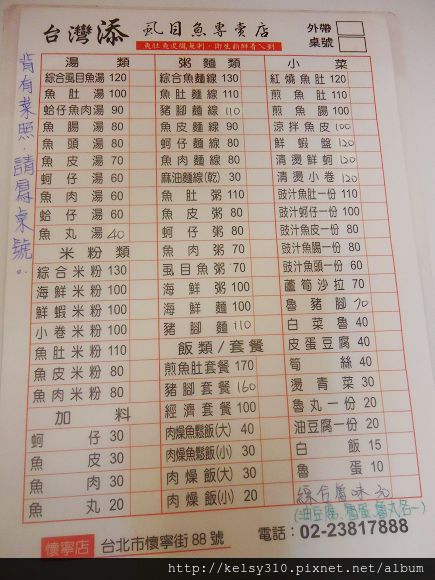 台灣添 虱目魚專賣店
外帶
桌號
魚肚魚皮攏無刺,衛生新鮮看ㄟ到
背有菜照,請寫桌號
湯類
綜合虱目魚湯 120
魚肚湯 100
蛤仔魚肉湯 90
魚腸湯 80
魚頭湯 80
魚皮湯 70
蚵仔湯 60
魚肉湯 60
蛤仔湯 60
魚丸湯 40
米粉類
綜合米粉 130
海鮮米粉 100
鮮蝦米粉 100
小卷米粉 100
魚肚米粉 110
魚皮米粉 80
魚肉米粉 80
加料
蚵仔 30
魚皮 30
魚肉 30
魚丸 20
粥麵類
綜合魚麵線 130
魚肚麵線 110
豬腳麵線 110
魚皮麵線 90
蚵仔麵線 80
魚肉麵線 80
麻油麵線(乾) 30
魚肚粥 110
魚皮粥 80
蚵仔粥 80
魚肉粥 70
虱目魚粥 70
海鮮粥 100
海鮮麵 100
豬腳麵 110
飯類/套餐
煎魚肚套餐 170
豬腳套餐 160
經濟套餐 100
肉燥魚鬆飯(大) 40
肉燥魚鬆飯(小) 30
肉燥飯(大) 30
肉燥飯(小) 20
小菜
紅燒魚肚 120
煎魚肚 100
煎魚腸 100
涼拌魚皮 100
鮮蝦盤 120
清燙鮮蚵 120
清燙小卷 120
豉汁魚肚一份 110
豉汁蚵仔一份 100
豉汁魚皮一份 80
豉汁魚腸一份 80
豉汁魚頭一份 60
蘆筍沙拉 70
魯豬腳 70
白菜魯 40
皮蛋豆腐 40
筍絲 40
燙青菜 30
魯丸一份 20
油豆腐一份 20
白飯 15
魯蛋 10
綜合魯味
懷寧店
台北市懷寧街88號
電話:02-23817888
http://kelsy310.pixnet.net/album